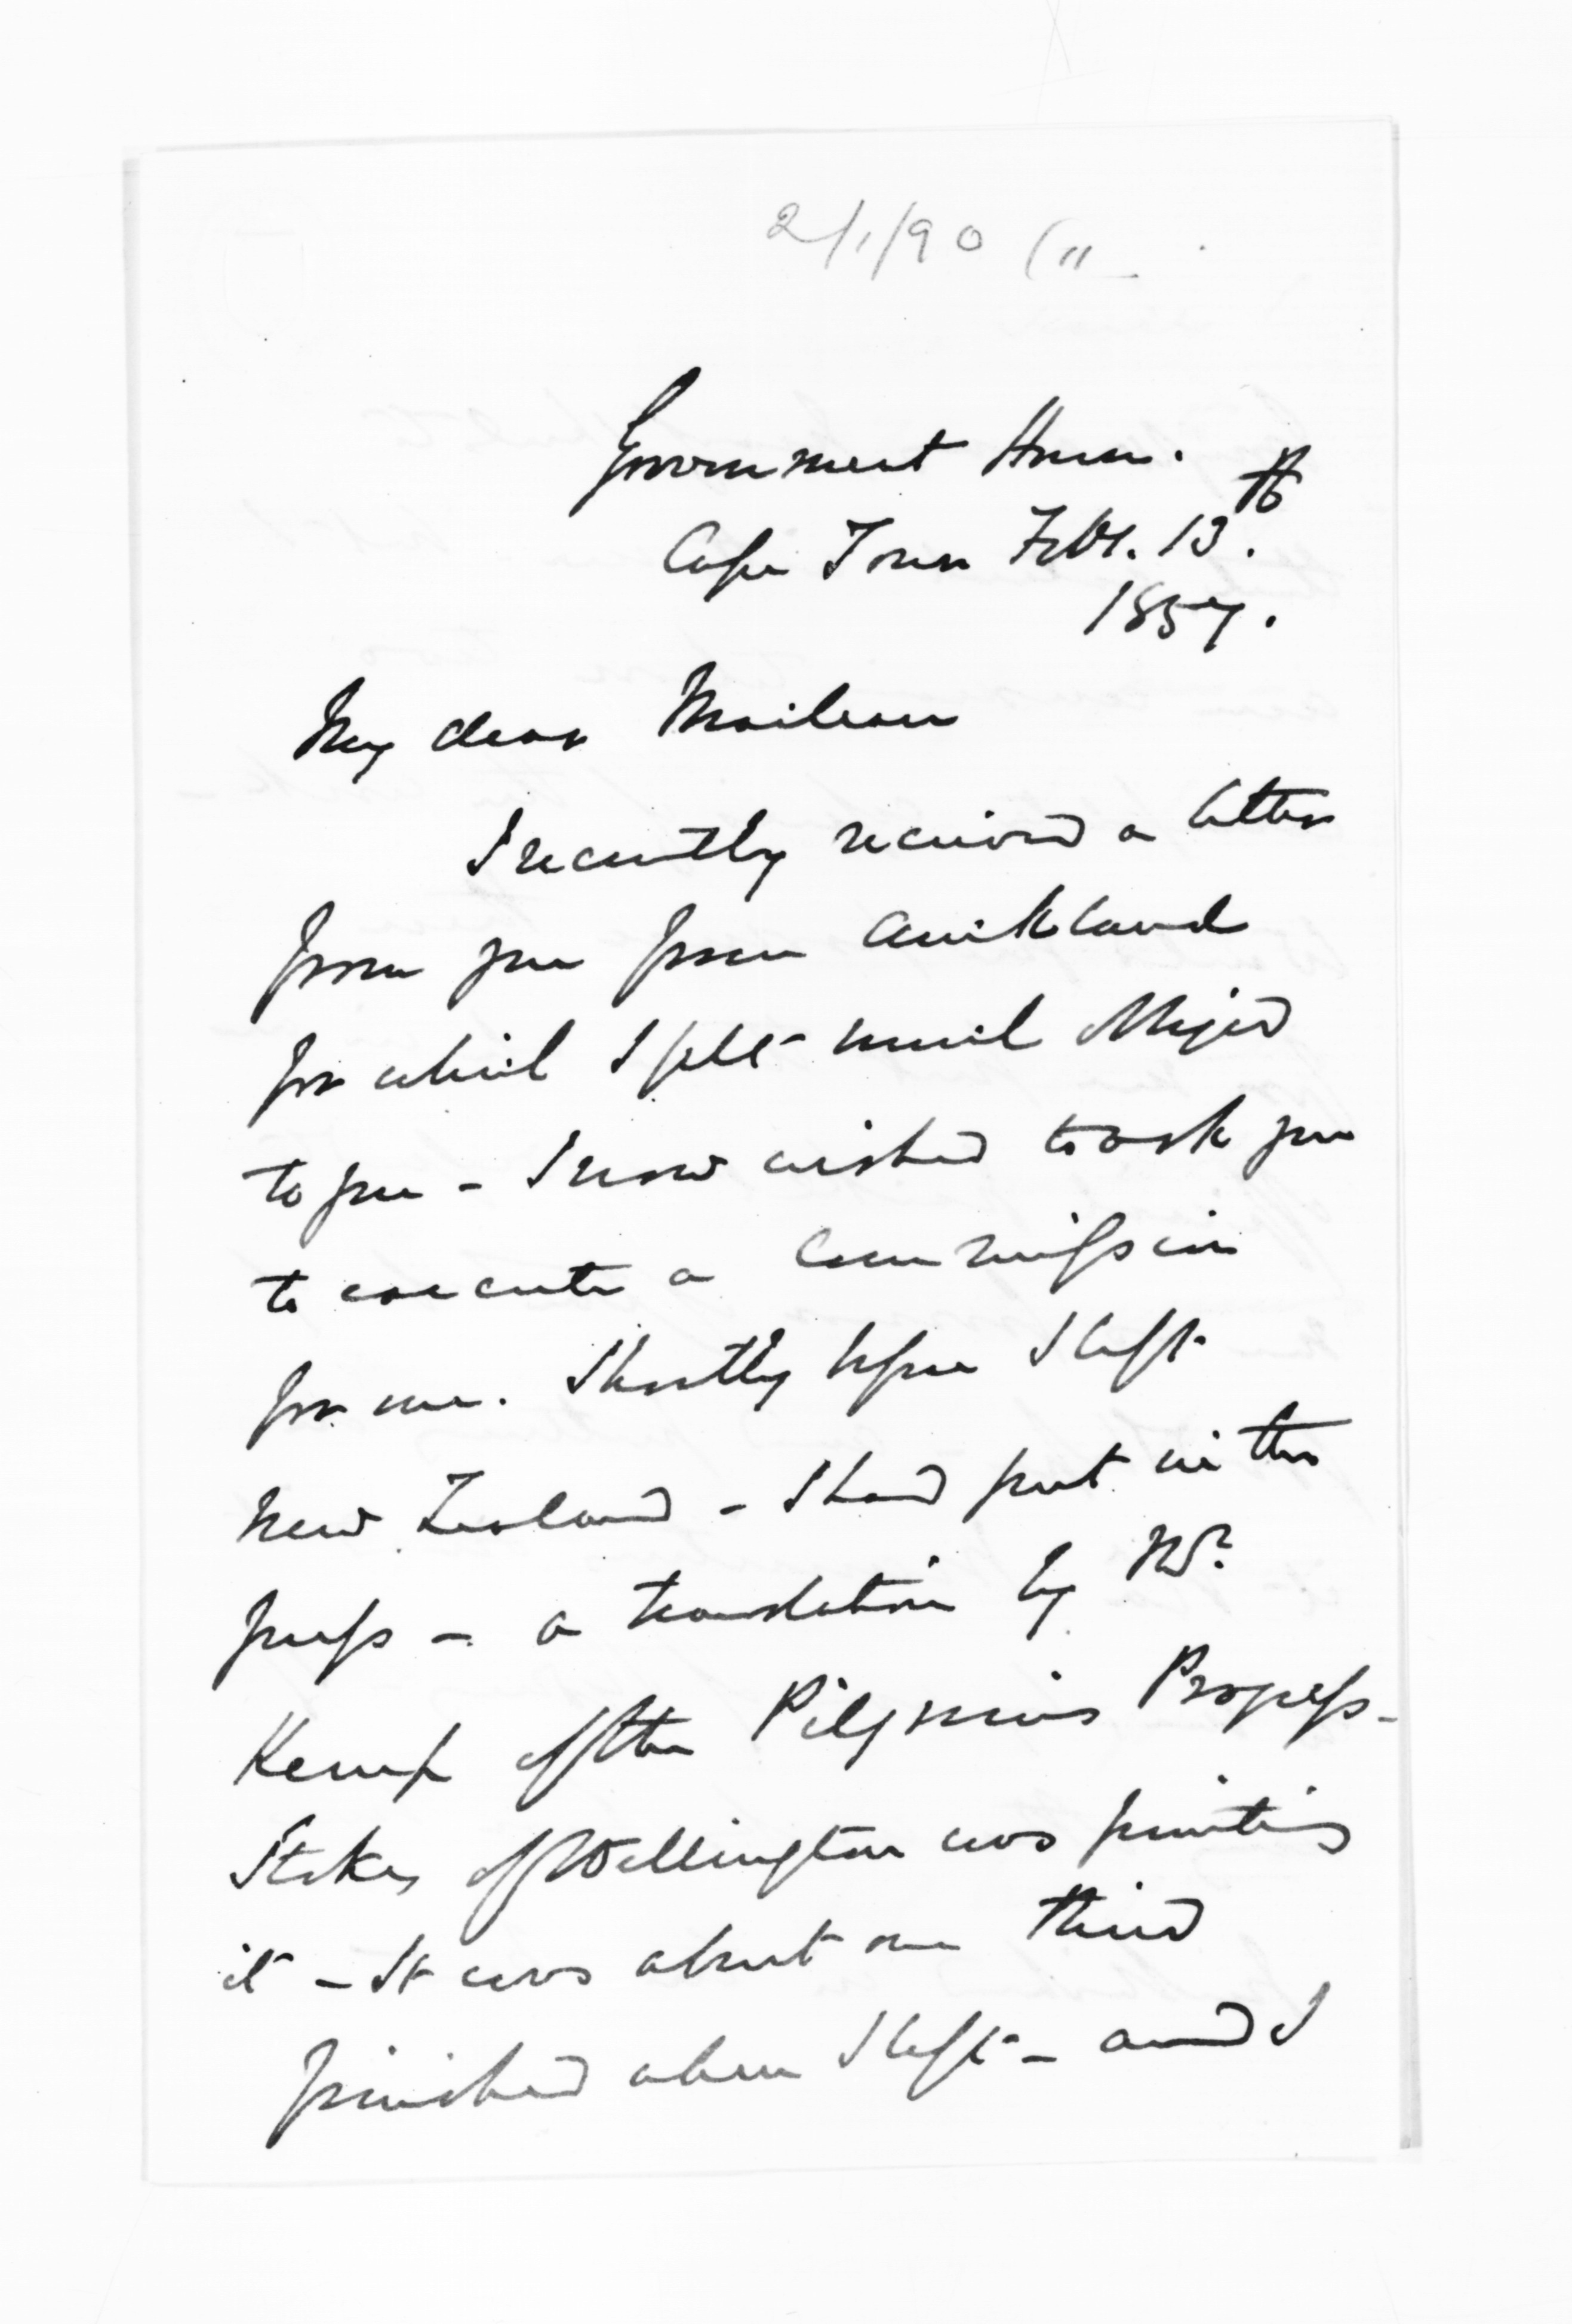 2/1/90 (11
Government House.
Cape Town Feby. 13th.
1857.
My dear McLean
I recently received a letter
from you from Auckland
for which I felt much obliged
to you - I now wished to ask you
to execute a commission
for me. Shortly before I left
New Zealand - I had put in the
press - a translation by Mr.
Kemp of the Pilgrims Progress -
Stokes of Wellington was printing
it - It was about one third
finished when I left - and I